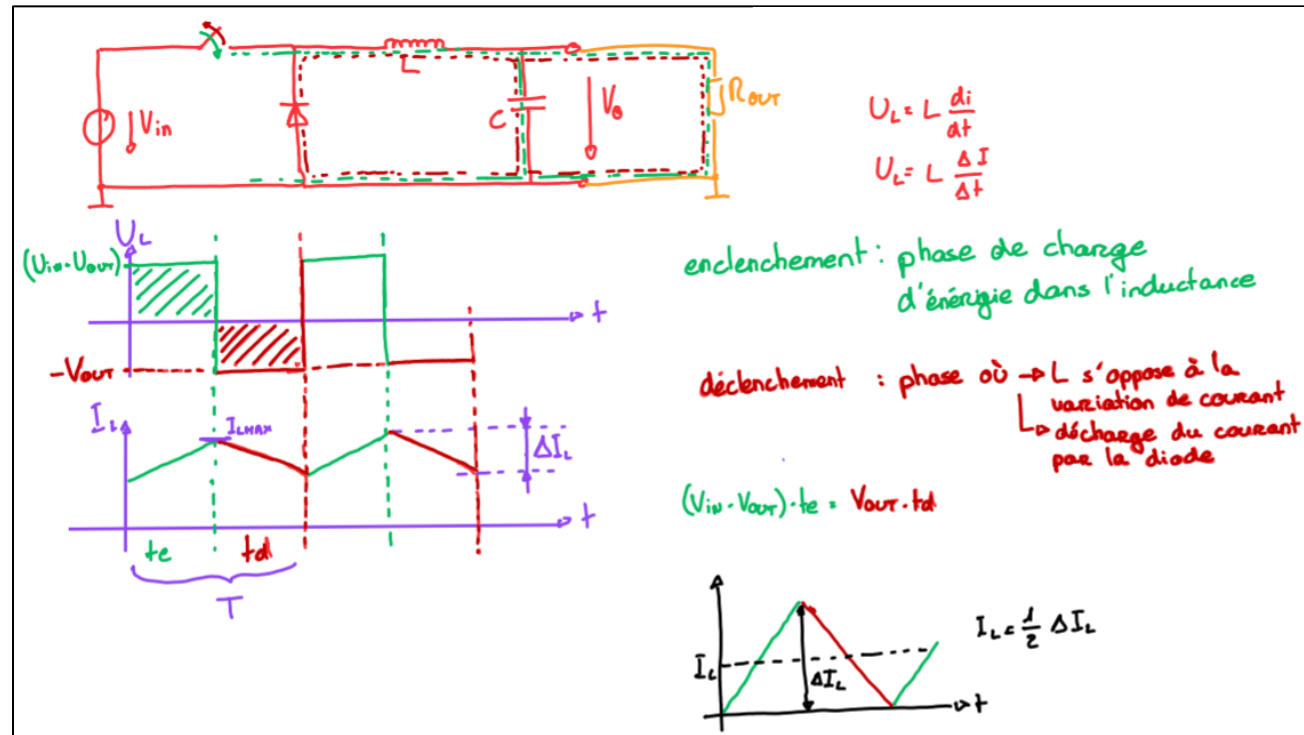 L
Vin
C
Vo
ROUT
UL = L di/dt
UL = L ΔI/Δt
UL
(Uin-Uout)
t
-VOUT
enclenchement : phase de charge
d'énergie dans l'inductance
déclenchement : phase où → L s'oppose à la
variation de courant
↳ décharge du courant
par la diode
IL
ILMAX
ΔIL
t
te
td
T
(Vin-Vout)·te = Vout·td
IL
ΔIL
t
IL = 1/2 ΔIL